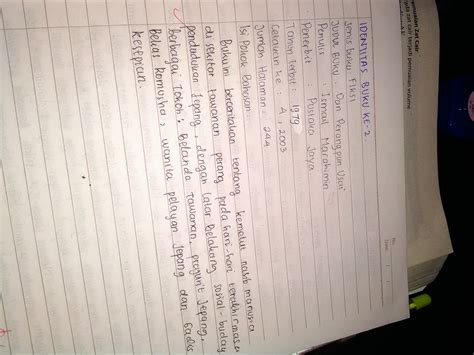 IDENTITAS BUKU KE-2
Jenis buku : Fiksi
Judul Buku : Dan Perangpun Usai
Penulis : Ismail Marahimin
Penerbit : Pustaka Jaya
Tahun Terbit : 1979
Cetakan ke : 4, 2003
Jumlah Halaman : 244
Isi Pokok Bahasan
Buku ini berceritakan tentang kemelut nasib manusia
di sekitar tawanan perang pada hari-hari terakhir masa
pendudukan Jepang, dengan latar Belakang sosial-buday
Berbagai Tokoh: Belanda Tawanan, prajurit Jepang,
Bekas romusha, wanita pelayan Jepang dan Gadis
kesepian.
Zat Cair
zat cair terjadi pemuaian volume
No.
Date